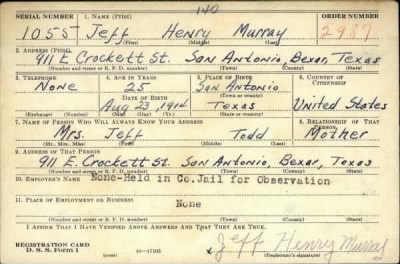 140
SERIAL NUMBER 1. NAME (Print) ORDER NUMBER
1055 Jeff Henry Murray 2987
(First) (Middle) (Last)
2. ADDRESS (Print)
911 E. Crockett St. San Antonio, Bexar, Texas
(Number and street or R. F. D. number) (Town) (County) (State)
3. TELEPHONE 4. AGE IN YEARS 5. PLACE OF BIRTH 6. COUNTRY OF CITIZENSHIP
None 25 San Antonio
(Town or county)
DATE OF BIRTH
Aug 23, 1914 Texas United States
(Exchange) (Number) (Mo.) (Day) (Yr.) (State or country)
7. NAME OF PERSON WHO WILL ALWAYS KNOW YOUR ADDRESS 8. RELATIONSHIP OF THAT PERSON
Mrs. Jeff Todd Mother
(Mr., Mrs., Miss) (First) (Middle) (Last)
9. ADDRESS OF THAT PERSON
911 E. Crockett St. San Antonio, Bexar, Texas
(Number and street or R. F. D. number) (Town) (County) (State)
10. EMPLOYER'S NAME None-Held in Co.Jail for Observation
11. PLACE OF EMPLOYMENT OR BUSINESS
None
(Number and street or R. F. D. number) (Town) (County) (State)
I AFFIRM THAT I HAVE VERIFIED ABOVE ANSWERS AND THAT THEY ARE TRUE.
REGISTRATION CARD
D. S. S. Form 1 16-17105 Jeff Henry Murray